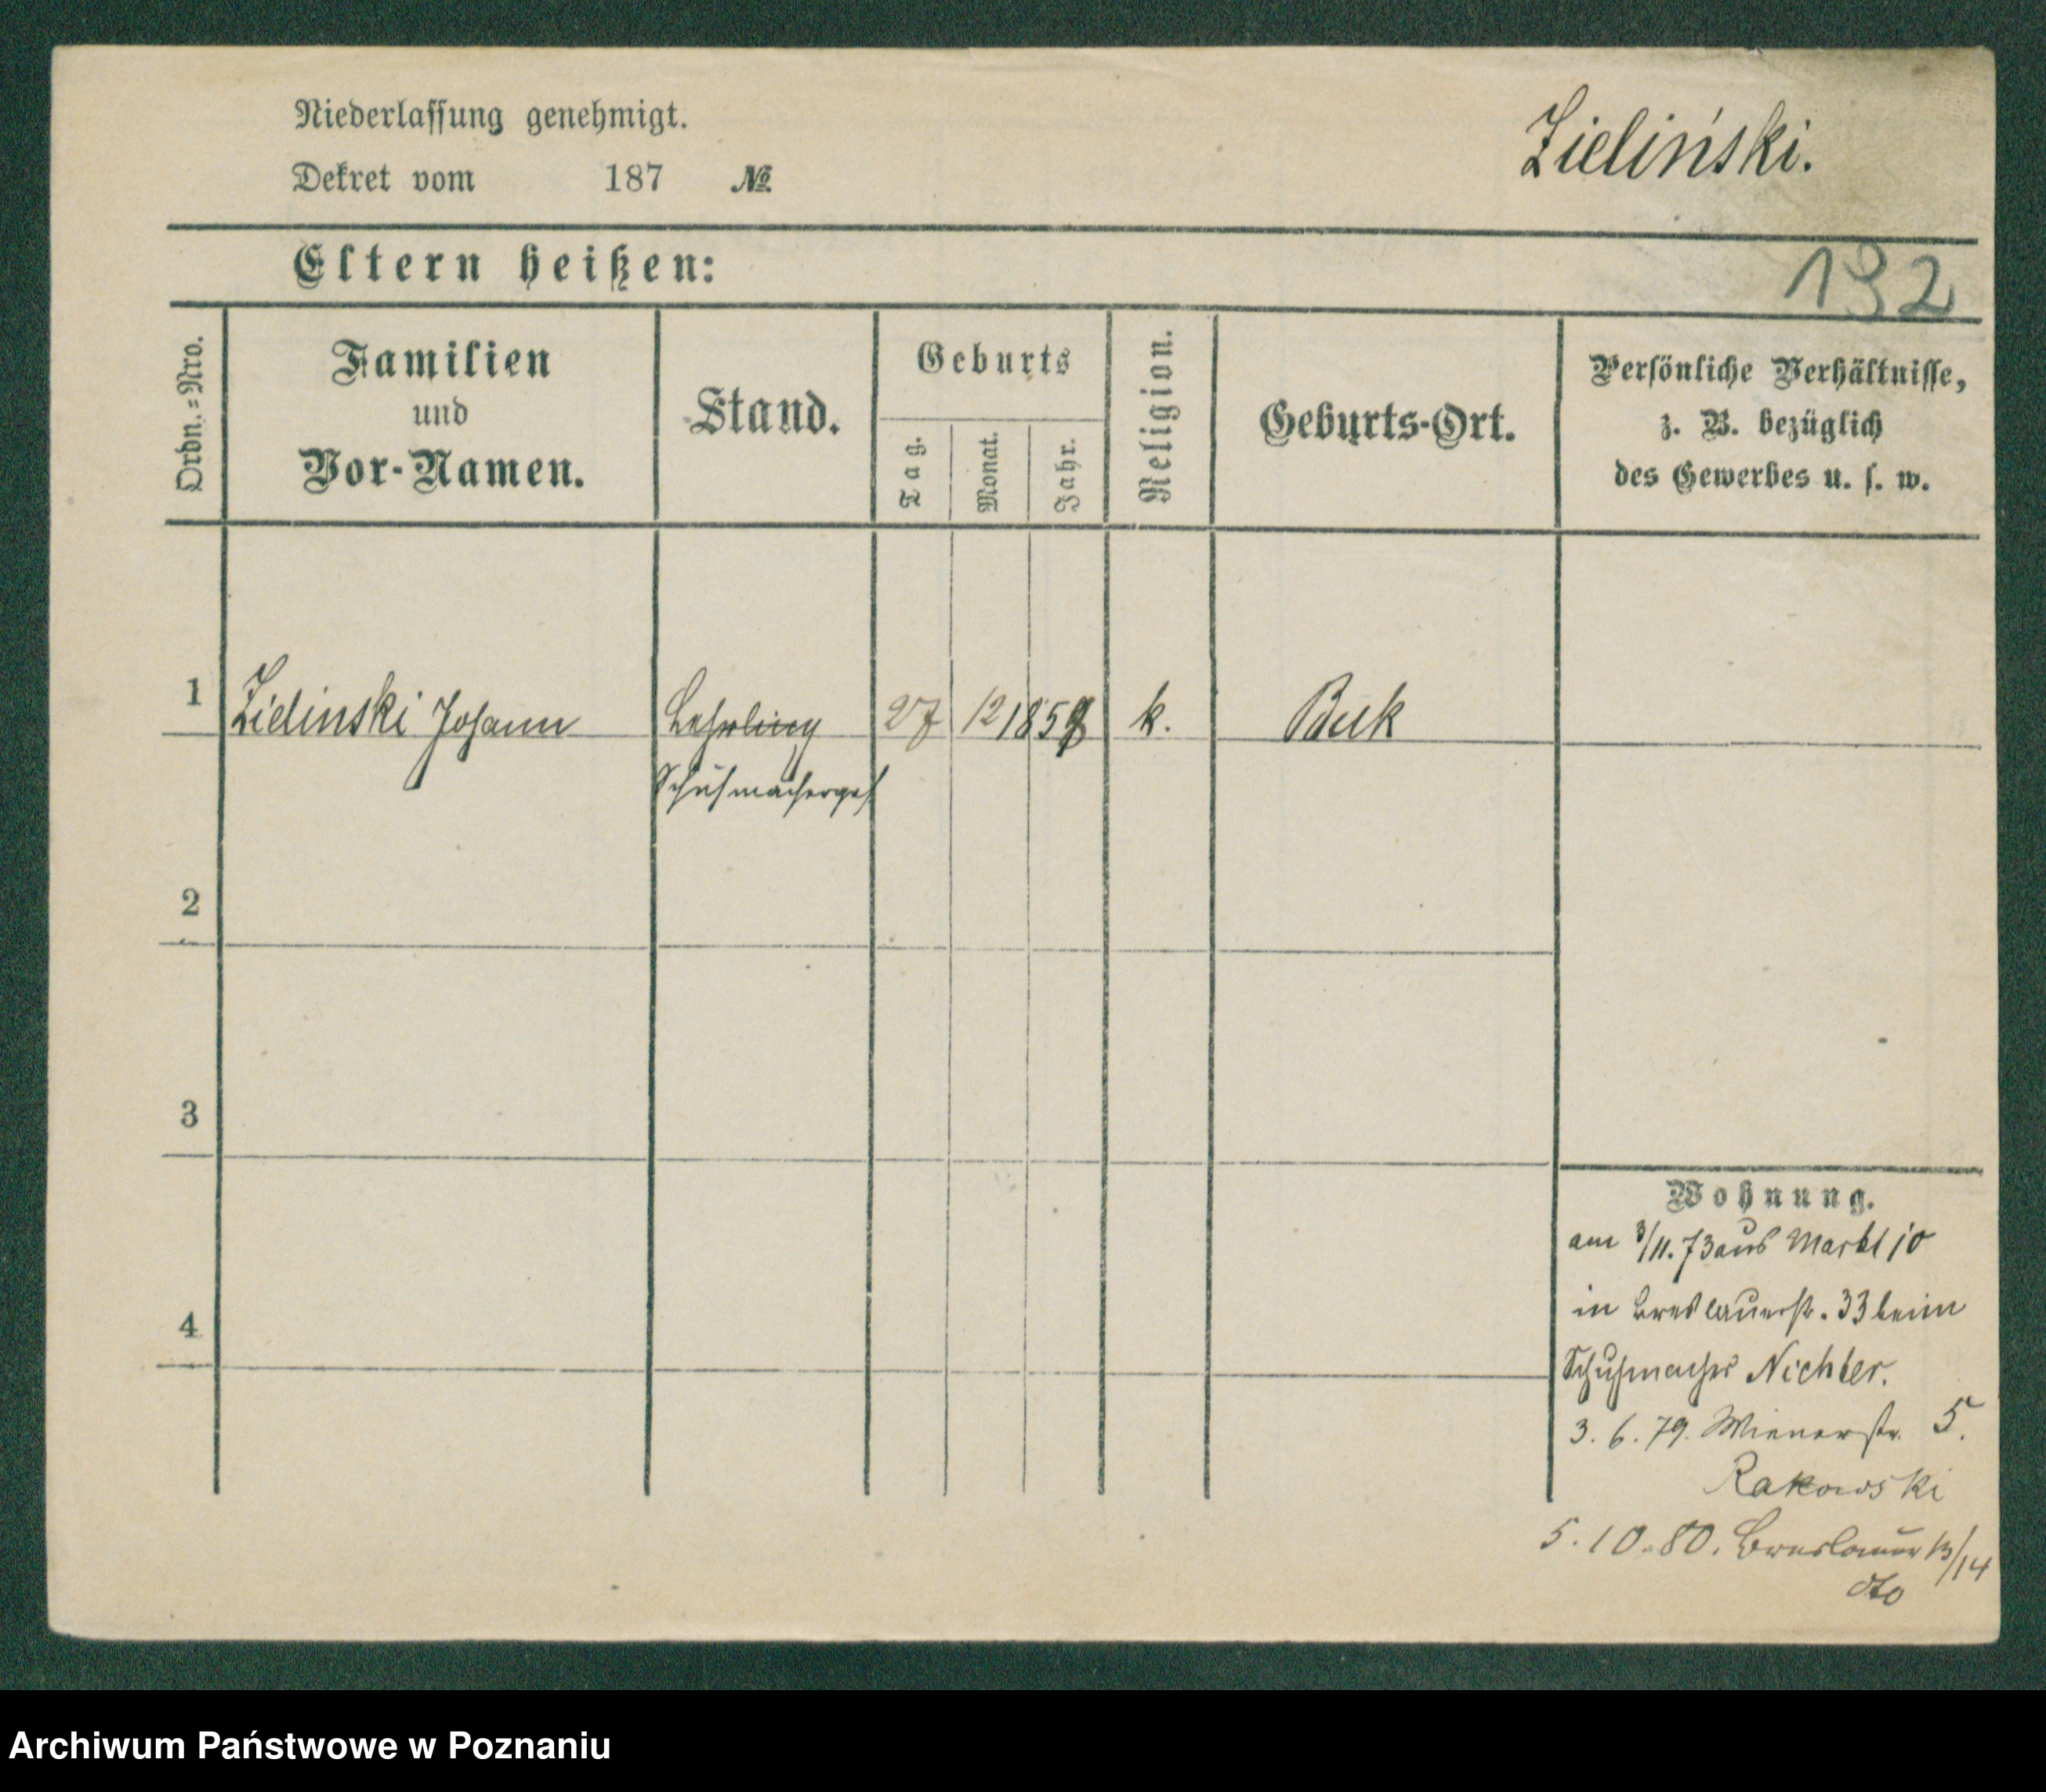 Niederlassung genehmigt.
Dekret vom 187 №
Zieliński.
Eltern heißen:
192
Ordn.=Nro.
Familien
und
Vor-Namen.
Stand.
Geburts
Tag.
Monat.
Jahr.
Religion.
Geburts-Ort.
Persönliche Verhältnisse,
z. B. bezüglich
des Gewerbes u. s. w.
1 Zielinski Johann Lehrling 27 12 1859 k. Buk
Schuhmacherges
2
3
4
Wohnung.
am 3/11. 73 aus Markt 10
in Breslauerstr. 33 beim
Schuhmacher Nichter.
3. 6. 79. Wienerstr. 5.
Rakowski
5. 10. 80. Breslauer 13/14
dto
Archiwum Państwowe w Poznaniu